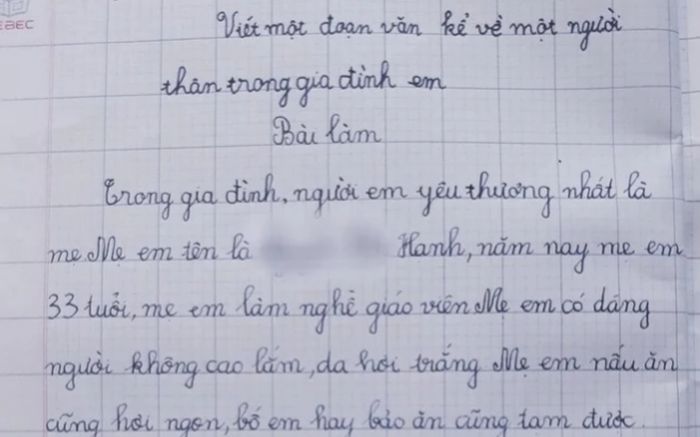 EBEC
Viết một đoạn văn kể về một người
thân trong gia đình em
Bài làm
Trong gia đình, người em yêu thương nhất là
mẹ. Mẹ em tên là Hạnh, năm nay mẹ em
33 tuổi, mẹ em làm nghề giáo viên. Mẹ em có dáng
người không cao lắm, da hơi trắng. Mẹ em nấu ăn
cũng hơi ngon, bố em hay bảo ăn cũng tạm được.